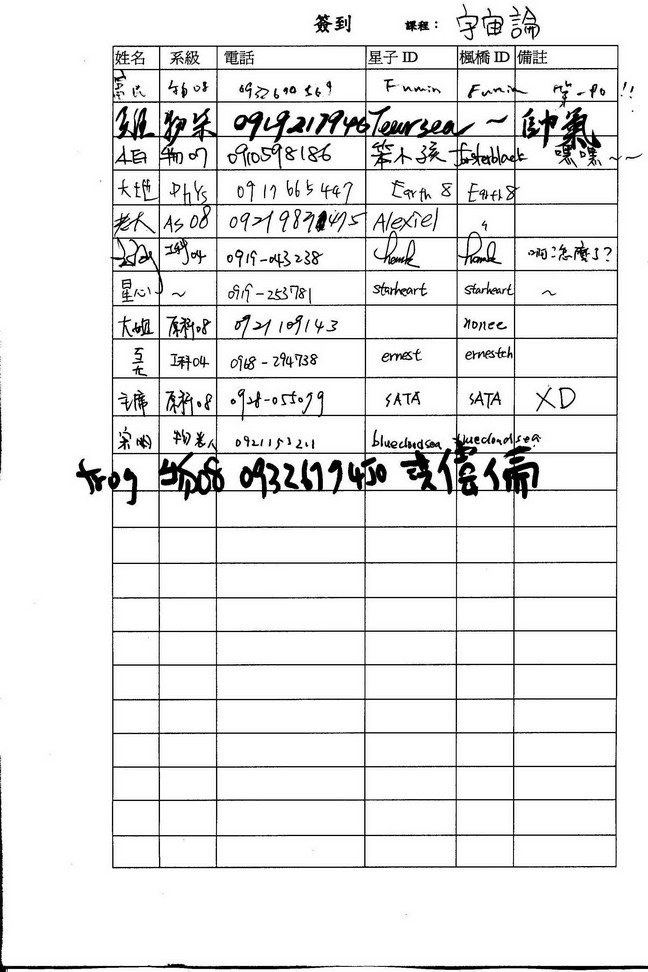 簽到 課程： 宇宙論
姓名 系級 電話 星子 ID 楓橋 ID 備註
物08 Fumin Fumin 第一 !!
0919217946 Teursea ~ 帥氣
物07 0910598186 笨小孩 嘿嘿~~
大地 Phys 0917665447 Earth 8 Earth 8
老大 AS08 Alexiel "
工科04 0919-043238 Hawk Hawk 啊怎麼了?
星心 ~ 0919-253781 starheart starheart ~
大姐 原科08 0921109143 nonee
工科04 0968-294738 ernest ernestch
主席 原科08 0928-055079 SATA SATA XD
0921153211 bluecloudsea bluecloudsea
frog 物08 0932679450